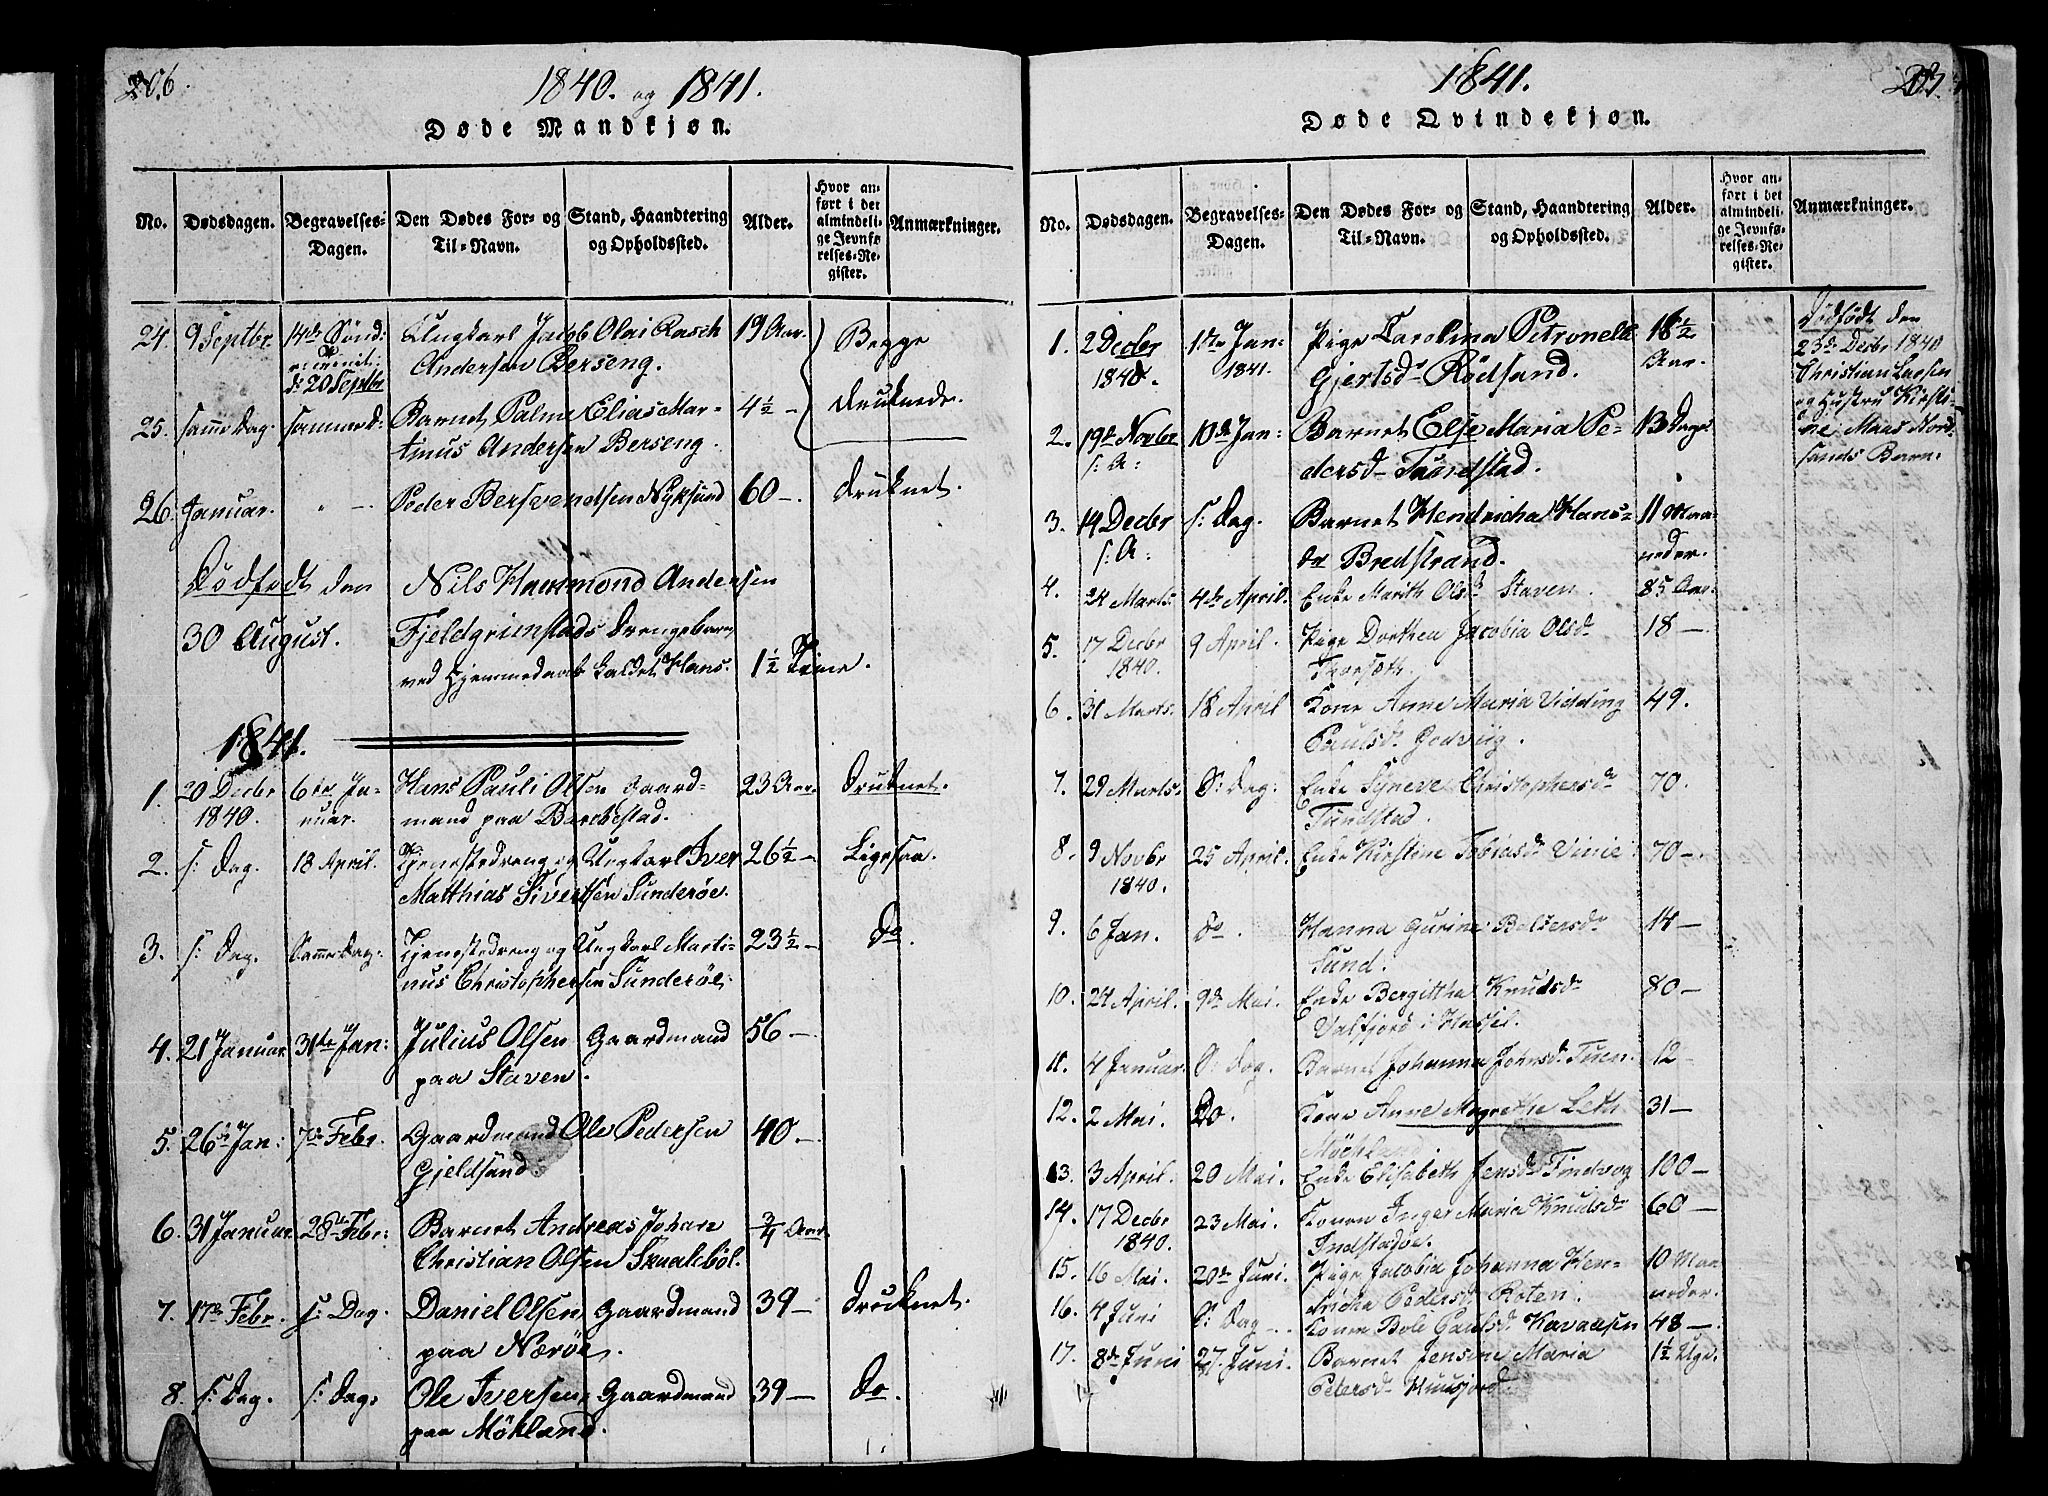 206.
1840. og 1841.
Døde Mandkjøn.
No.
Dødsdagen.
Begravelses-
Dagen.
Den Dødes For- og
Til-Navn.
Stand, Haandtering
og Opholdssted.
Alder.
Hvor an-
ført i det
almindeli-
ge Jevnfø-
relses-Re-
gister.
Anmærkninger.
24. 9 Septbr. 14de Sønd: Ungkarl Jacob Olai Rasch 19 Aar. Begge
d: 20 Septbr Andersen Berseng.
25. samme Dag. samme D: Barnet Palme Elias Mar- 4½ — druknede.
tinus Andersen Berseng.
26. Januar. " — Peder Bersvendsen Nyksund 60 — druknet.
Dødfødt den Nils Hammond Andersen
30 August. Fjeldgrimstads Drengebarn
ved Hjemmedaab kaldet Hans. 1½ Time.
1841.
1. 20 Decbr 6te Ja- Hans Pauli Olsen Gaard- 23 Aar. Druknet.
1840. nuar. mand paa Barkestad.
2. s: Dag. 18 April. Tjenestedreng og Ungkarl Iver 26½ — Ligesaa.
Matthias Sivertsen Sunderøe.
3. s: Dag. Samme Dag. Tjenestedreng og Ungkarl Marti- 23½ — Do.
nus Christophersen Sunderöe.
4. 21 Januar 31te Jan: Julius Olsen Gaardmand 56 —
paa Staven.
5. 26 Jan: 7de Febr. Gaardmand Ole Pedersen 40. —
Gjeldsand.
6. 31 Januar. 28de Febr: Barnet Andreas Johan ¾ Aar.
Christian Olsen Skaaleböl.
7. 17de Febr. s: Dag. Daniel Olsen, Gaardmand 39 — Drucknet.
paa Nærøe.
8. s: Dag. s: Dag. Ole Iversen, Gaardmand 39 — Do.
paa Mökland.
1841.
207.
Døde Qvindekjøn.
No.
Dødsdagen.
Begravelses-
Dagen.
Den Dødes For- og
Til-Navn.
Stand, Haandtering
og Opholdssted.
Alder.
Hvor an-
ført i det
almindeli-
ge Jevnfø-
relses-Re-
gister.
Anmærkninger.
1. 2 Decbr 1ste Jan- Pige Carolina Petronelle 18½
1840. 1841. Gjertsdr Rödsand. Aar.
Dødfødt den
23de Decbr 1840
Christian Larsen
og Hustru Kirsti-
ne Maas Nord-
sands Barn.
2. 19de Novbr 10de Jan: Barnet Else Maria Pe- 13 Dage
s: A: dersdr Tunstad.
3. 14 Decbr s: Dag. Barnet Hendricha Hans- 11 Maa-
s: A: dr Bredstrand. neder.
4. 24 Marts. 4de April. Enke Marith Olsdr Staven. 85 Aar.
5. 17 Decbr 9 April. Pige Dorthea Jacobia Olsdr 18 —
1840. Thorsæth.
6. 31 Marts. 18 April Kone Anne Maria Vidding 49.
Paulsdr Godviig.
7. 29 Marts. S: Dag: Enke Syneve Christophersdr 70.
Tundstad.
8. 9 Novbr 25 April. Enke Kirstine Tobiasdr Vinie 70 —
1840.
9. 6 Jan. Do. Hanna Gurine Baltsersdr 14 —
Sund.
10. 24 April. 9de Mai. Enke Bergitthe Knudsdr 80 —
Valfjord i Hassel.
11. 4 Januar. S: Dag. Barnet Johanna Johnsdr Tuen. 12 —
12. 2 Mai. Do. Kone Anne Magrethe Leth 31 —
Möchland.
13. 3 April. 20 Mai. Enke Elisabeth Jensdr Findvog 100 —
14. 17 Decbr 23 Mai. Konen Inger Maria Knudsdr 60 —
1840. Indstadøe.
15. 16 Mai. 20de Juni. Pige Jacobia Johanna Hen- 10 Maa-
ricka Pedersdr Roten. neder.
16. 4 Juni S: Dag. Konen Bole Paulsdr Kavaasen 48 —
17. 8de Juni 27. Juni. Barnet Jensine Maria 1½ Uge.
Petersdr Kuusjord.